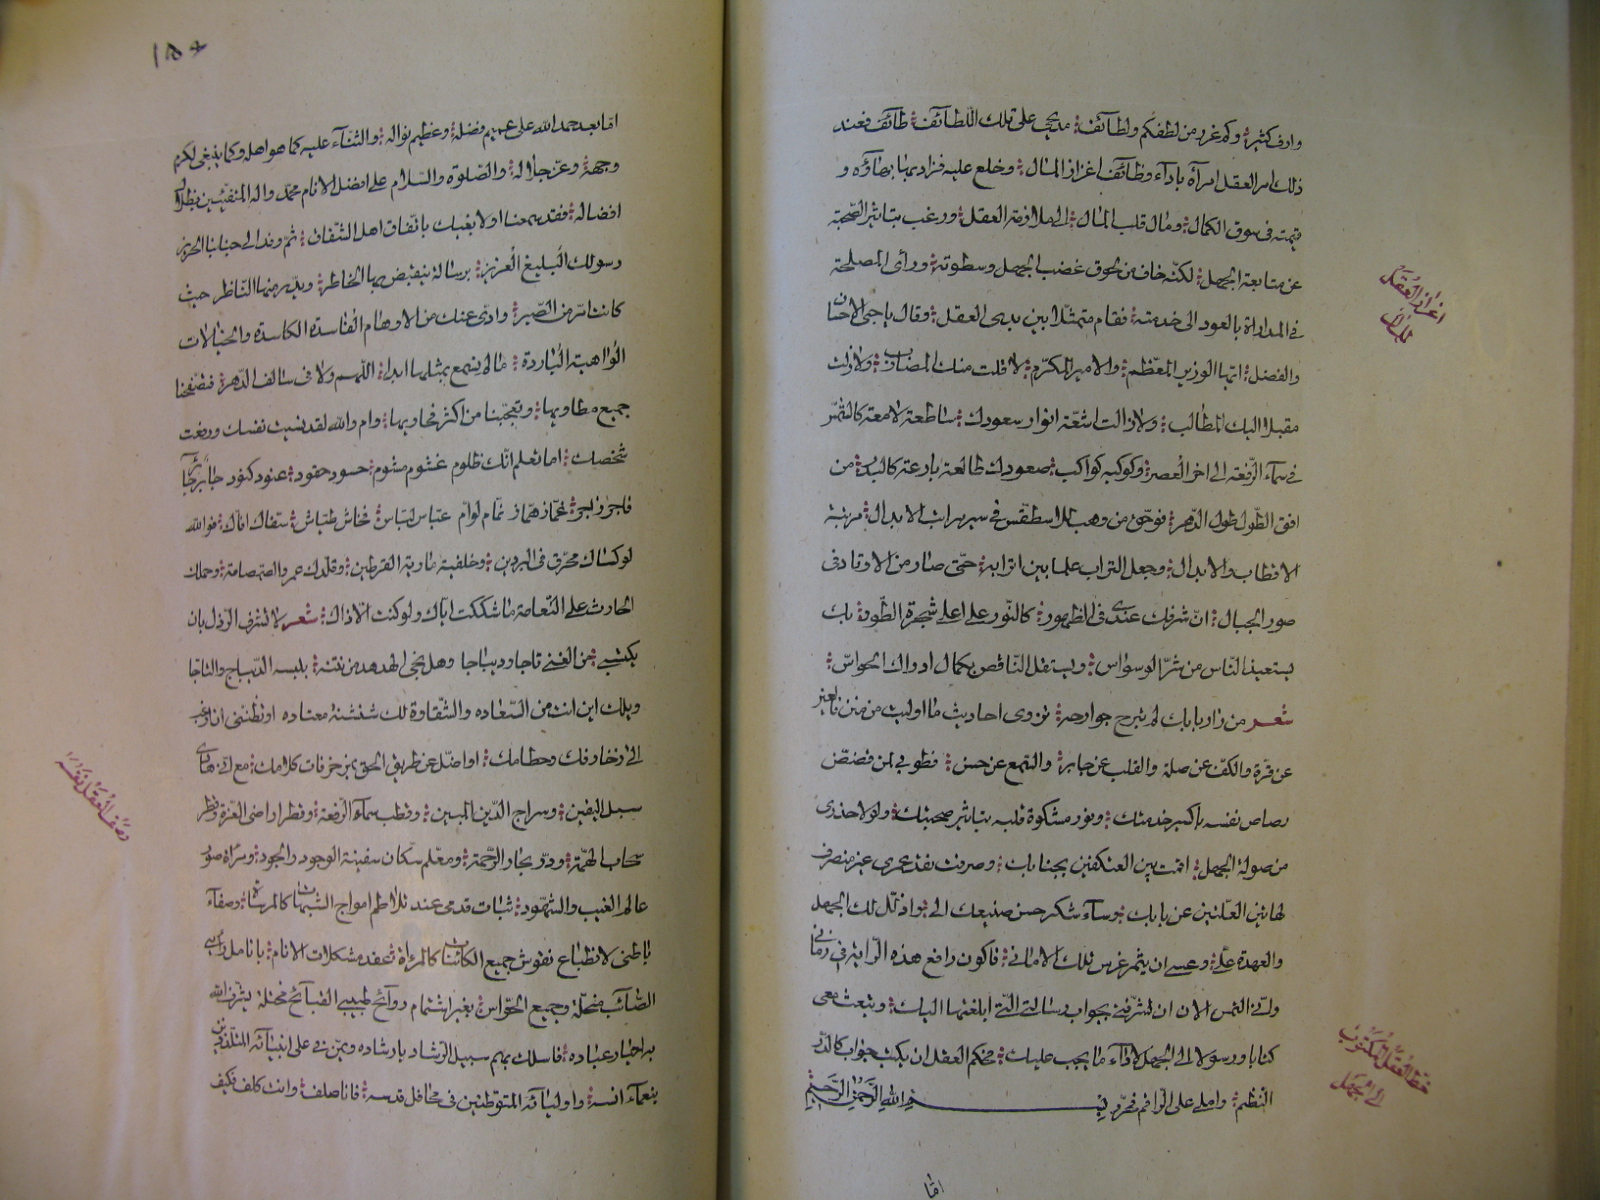 وادف كثيرة وكم غرر من لطفكم ولطائف مديحي على تلك اللطائف طائف فعند
ذلك امر العقل امرآة بادآء وظائف اغزاز المال وخلع عليه فزاد بها بهاؤه و
قيمته في سوق الكمال ومال قلب المال الى ملازمة العقل ورغب بتباشير الصحبة
عن متابعة الجهل لكنه خاف من لحوق غضب الجهل وسطوته ورأى المصلحة
في المداراة بالعود الى خدمته فقام متمثلا بين يدى العقل وقال يا محيى الاحسان
والفضل ايها الوزير المعظم والامير المكرم لا قلت منك المضارب ولا زلت
مقبلا اليك المطالب ولا زالت اشعة انوار سعودك ساطعة لامعة كالشمس
في سمآء الرفعة الى اخر العصر وكوكبه كواكب صعودك طالعة بارعة كالبدر من
افق الطول طول الدهر فوحق من وهب للاسطقس في سير مراتب الابدال مرتبة
الاقطاب والابدال وجعل التراب علما بين اترابه حتى صار من الاوتاد في
صور الجبال ان شرفك عندى في الظهور كالنور على اعلى شجرة الطور بك
يستعيذ الناس من شر الوسواس ويستقل الناقص بكمال ادراك الحواس
شعر من زار بابك لم تبرح جوارحه تروى احاديث ما اوليت من منن فالعين
عن قرة والكف عن صلة والقلب عن جابر والسمع عن حسن فطوبى لمن فضض
رصاص نفسه باكسير خدمتك ونور مشكوة قلبه بتباشير صحبتك ولولا حذرى
من صولة الجهل اقمت بين العتكفين بجنابك وصرفت نقد عمرى غير منصرف
لهاتين العلتين عن بابك وسآء شكر حسن صنيعك الى بواذلل لك الجهل
والعهدة على وعسى ان يثمر غرس تلك الامانى فاكون رافع هذه الراية في زمانى
ولكن التمس الان ان تشرفنى بجواب رسالتى التى ابلغتها اليك وتبعث معى
كتابا ورسولا الى الجهل لاداء ما يجب عليك فحكم العقل ان يكتب جواب كالدر
النظيم واملى على الراقم فحرر بسم الله الرحمن الرحيم
اما
اغزاز العقل
للمال
خط العقل المكتوب
الى الجهل
اما بعد حمد الله على عميم فضله وعظيم نواله والثنآء عليه كما هو اهله وكما ينبغى لكرم
وجهه وعز جلاله والصلوة والسلام على افضل الانام محمد واله المتفيئين بظلال
افضاله فقد سمعنا اولا بغيك باتفاق اهل الشقاق ثم وفد الى جنابنا الحريز
رسولك البليغ العزيز برسالة ينقبض بها الخاطر ويدبر منها الناظر حيث
كانت امر من الصبر وادى عنك من الاوهام الفاسدة الكاسدة والخيالات
الواهية الباردة ما لم نسمع بمثلها ابدا اللهم ولا في سالف الدهر فتصفحنا
جميع مطاويها وتعجبنا من اكثر فحاويها وام والله لقد نسيت نفسك ورفعت
شخصك اما تعلم انك ظلوم غشوم مشوم حسود حقود عنود كنود جابر
فاجر غماز همار نمام لوام عباس لباس فحاش طياش سفاك افاك فوالله
لو كساك محرق في البردين وخلفيه مارية القرطين وقلدك عمرو الصمصامة وحملك
الحارث على النعامة ما شككت اياك ولو كنت الا ذاك شعر لا تشرف الرذل بان
يكتسى من الغنى تاجا وديباجا وهل نجى الهدهد من نتنه بلبسه الديباج والتاجا
ويلك اين انت من السعاده والشقاوة لك شنشنة معتاده اوتظننى انا
الى زخارفك وحطامك او اضل عن طريق الحق بمزخرفات كلامك مع انى هادى
سبيل اليقين وسراج الدين المبين وقطب سمآء الرفعة وقطر اراضى العزة وقطر
سحاب الهمة ودر بحار الرحمة ومعلم سكان سفينة الوجود والجود ومرآة صور
عالم الغيب والشهود ثبات قدمى عند تلاطم امواج الشبهات كالمرساة وصفآء
باطنى لانطباع نقوش جميع الكائنات كالمرآة فعقد مشكلات الانام بانامل
الصائب منحلة وجميع الحواس بغير اشتمام روائح طيبى القبائح مختلة بشرف الله
بى اخيار عباده فاسلك بهم سبيل الرشاد بارشاده ويمن بى على انبيائه المتلذذين
بنعمآء انسه واوليائه المتوطنين في محافل قدسه فانا صلف وانت كلف فكيف
وصف العقل نفسه